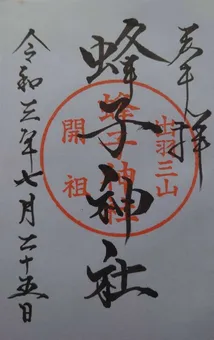 奉拝
出羽三山
蜂子神社
開祖
蜂子神社
令和三年七月二十五日